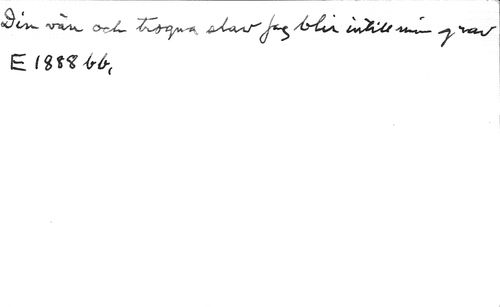 Din vän och trogna slav Jag blir intill min grav
E 1888 bb,